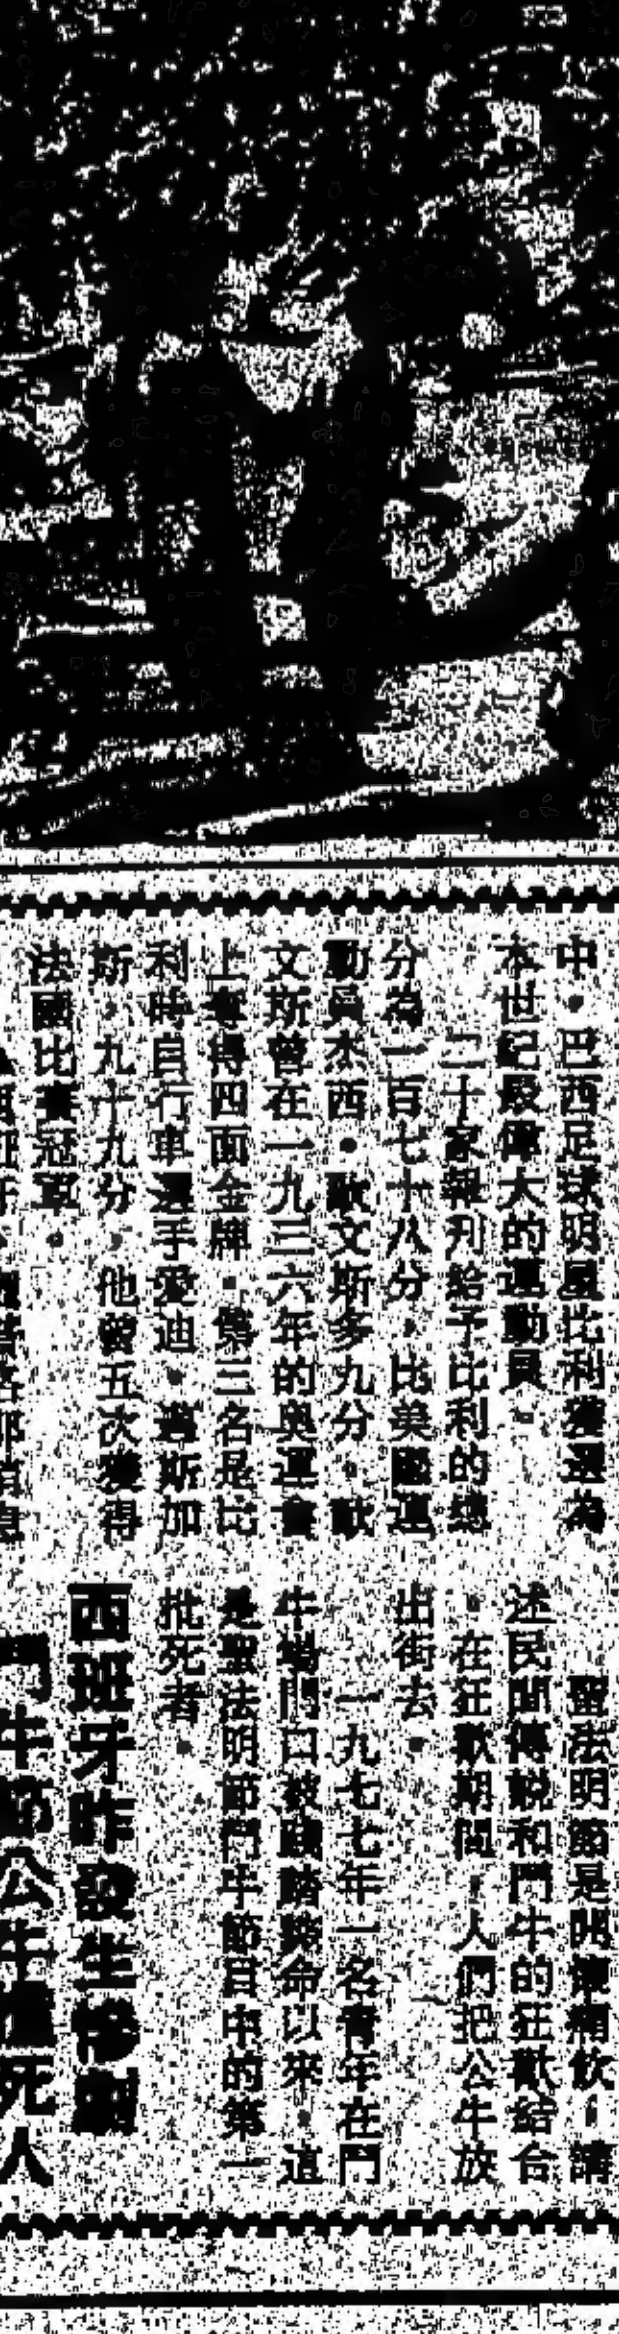 中・巴西足球明星比利獲選為
本世紀最偉大的運動員・
二十家報刊給予比利的總
分為一百七十八分，比美國運
動員杰西・歐文斯多九分・歐
文斯曾在一九三六年的奧運會
上奪得四面金牌・第三名是比
利時自行車選手愛迪・斯加
斯，九十九分，他曾五次獲得
法國比賽冠軍・
聖法明節是飲，講
述民間傳說和鬥牛的狂歡結合
・在狂歡期間，人們把公牛放
出街去・
一九七七年一名青年在鬥
牛場門口被踐踏命以來，這
是聖法明節鬥牛節目中的第一
批死者・
西班牙昨發生慘劇
鬥牛節公牛死人